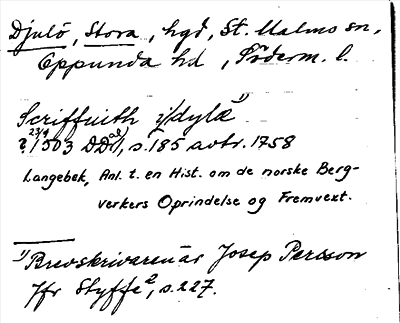 Djulö, Stora, hgd, St. Malms sn,
Oppunda hd, Söderm. l.
Scriffuith i Dylæ 1)
23/4 1503 DD al), s. 185 avtr. 1758
Langebek, Anl. t. en Hist. om de norske Berg-
verkers Oprindelse og Fremvext.
1) Brevskrivaren är Josep Persson
Jfr Styffe 2, s. 227.